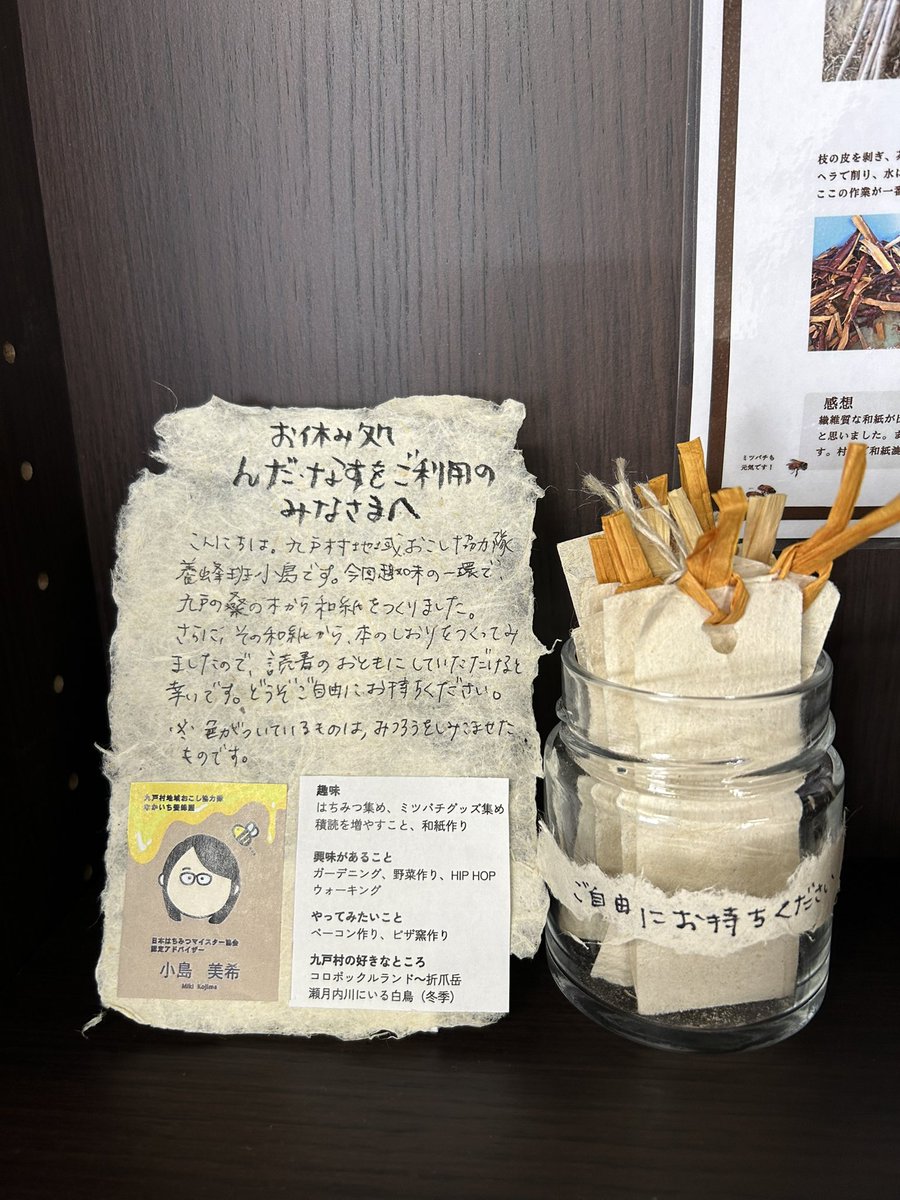 お休み処
んだ・なすをご利用の
みなさまへ
こんにちは。九戸村地域おこし協力隊
養蜂班小島です。今回趣味の一環で、
九戸の桑の木から和紙をつくりました。
さらに、その和紙から、本のしおりをつくってみ
ましたので、読書のおともにしていただけると
幸いです。どうぞご自由にお持ちください。
※色がついているものは、みつろうをしみこませた
ものです。
九戸村地域おこし協力隊
なかいち養蜂園
日本はちみつマイスター協会
認定アドバイザー
小島 美希
Miki Kojima
趣味
はちみつ集め、ミツバチグッズ集め
積読を増やすこと、和紙作り
興味があること
ガーデニング、野菜作り、HIP HOP
ウォーキング
やってみたいこと
ベーコン作り、ピザ窯作り
九戸村の好きなところ
コロポックルランド〜折爪岳
瀬月内川にいる白鳥（冬季）
ご自由にお持ちください
枝の皮を剥ぎ、
ヘラで削り、水に
ここの作業が一番
感想
繊維質な和紙が
と思いました。ま
す。村
和紙
ミツバチも
元気です！